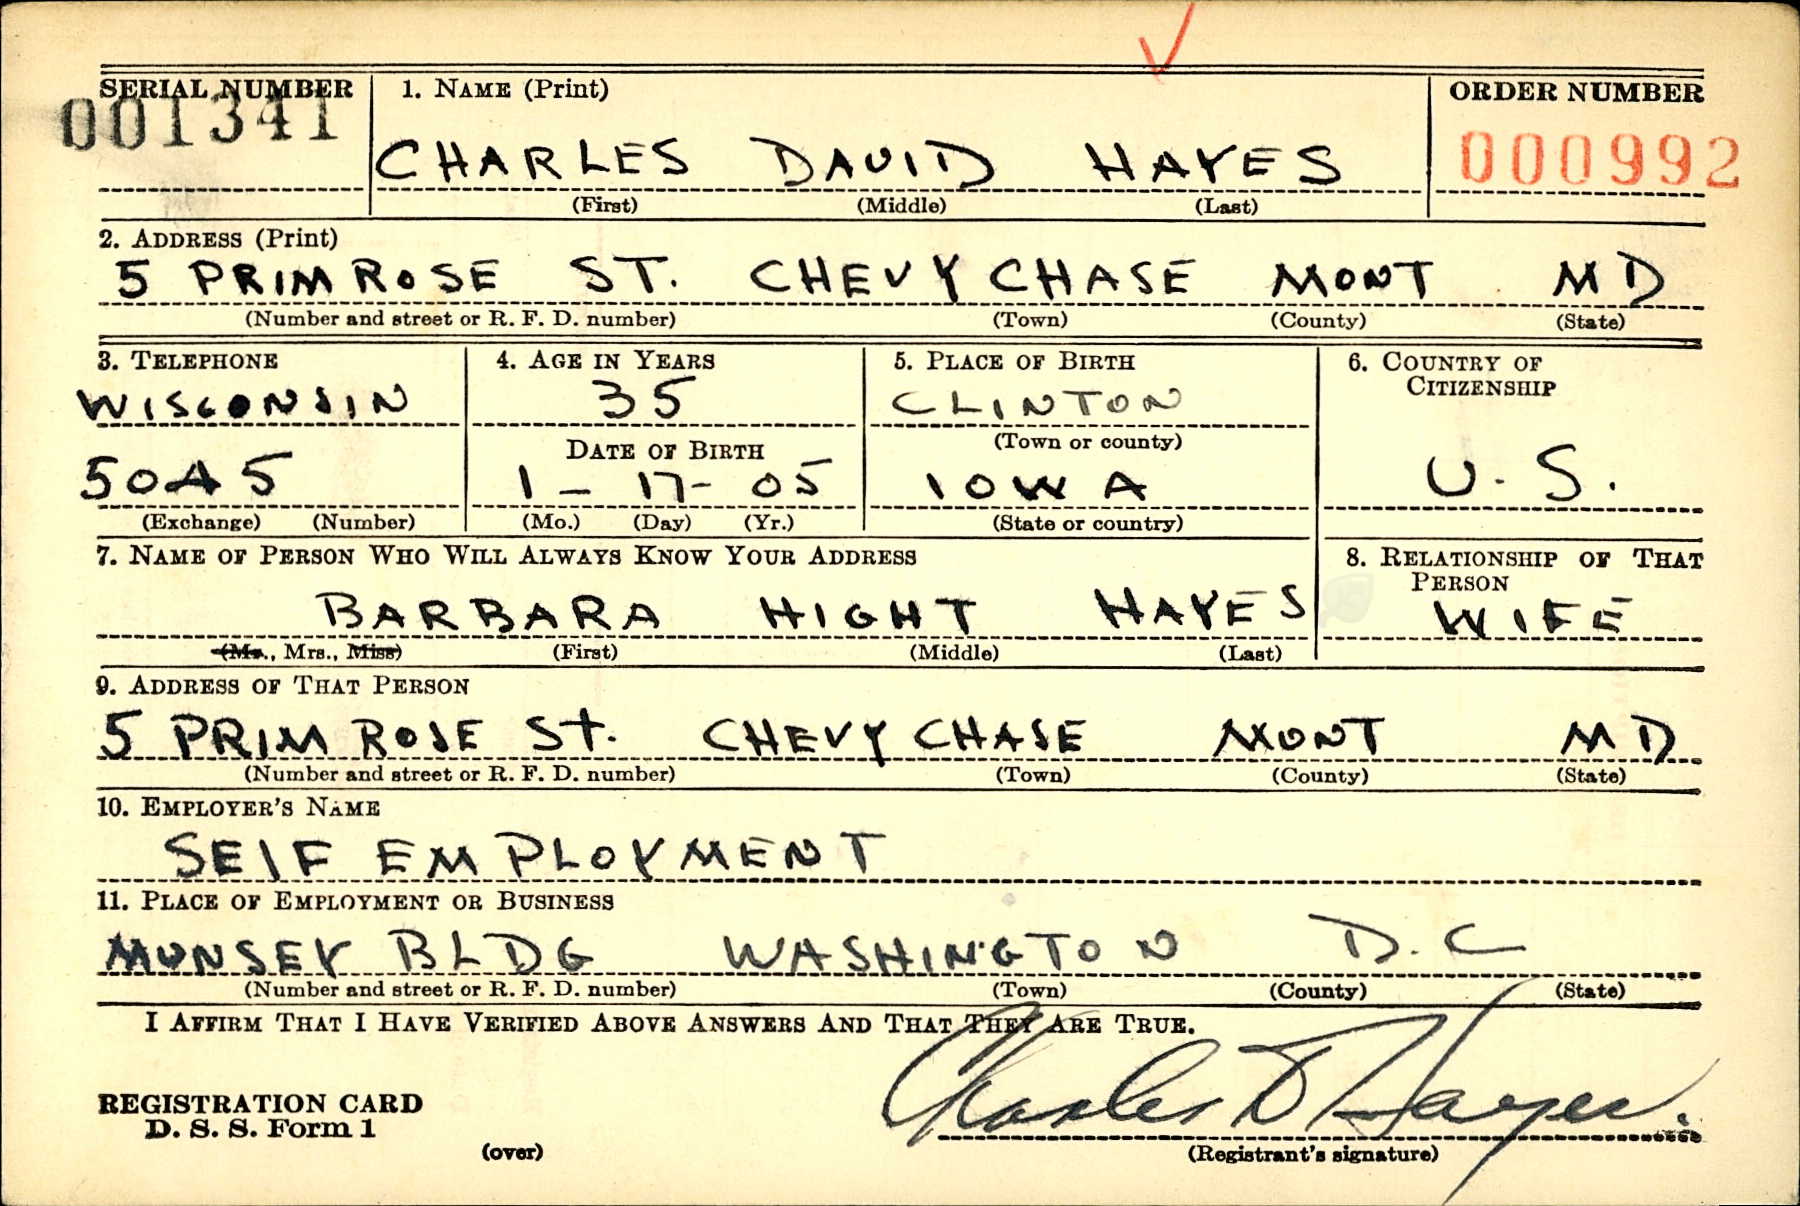 SERIAL NUMBER 1. NAME (Print) ORDER NUMBER
001341 CHARLES DAVID HAYES 000992
(First) (Middle) (Last)
2. ADDRESS (Print)
5 PRIMROSE ST. CHEVY CHASE MONT MD
(Number and street or R. F. D. number) (Town) (County) (State)
3. TELEPHONE 4. AGE IN YEARS 5. PLACE OF BIRTH 6. COUNTRY OF
CITIZENSHIP
WISCONSIN 35 CLINTON
DATE OF BIRTH (Town or county)
5045 1 - 17 - 05 IOWA U. S.
(Exchange) (Number) (Mo.) (Day) (Yr.) (State or country)
7. NAME OF PERSON WHO WILL ALWAYS KNOW YOUR ADDRESS 8. RELATIONSHIP OF THAT
PERSON
BARBARA HIGHT HAYES WIFE
(Mr., Mrs., Miss) (First) (Middle) (Last)
9. ADDRESS OF THAT PERSON
5 PRIMROSE St. CHEVY CHASE MONT MD
(Number and street or R. F. D. number) (Town) (County) (State)
10. EMPLOYER'S NAME
SElF EMPLOYMENT
11. PLACE OF EMPLOYMENT OR BUSINESS
MUNSEY BLDG WASHINGTON D.C
(Number and street or R. F. D. number) (Town) (County) (State)
I AFFIRM THAT I HAVE VERIFIED ABOVE ANSWERS AND THAT THEY ARE TRUE.
REGISTRATION CARD Charles D Hayes.
D. S. S. Form 1
(over) (Registrant's signature)